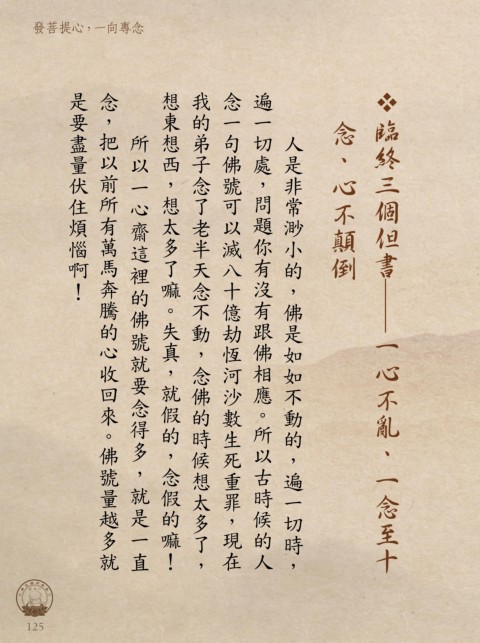 發菩提心，一向專念
❖臨終三個但書——一心不亂、一念至十
念、心不顛倒
人是非常渺小的，佛是如如不動的，遍一切時，
遍一切處，問題你有沒有跟佛相應。所以古時候的人
念一句佛號可以滅八十億劫恆河沙數生死重罪，現在
我的弟子念了老半天念不動，念佛的時候想太多了，
想東想西，想太多了嘛。失真，就假的，念假的嘛！
所以一心齋這裡的佛號就要念得多，就是一直
念，把以前所有萬馬奔騰的心收回來。佛號量越多就
是要盡量伏住煩惱啊！
125